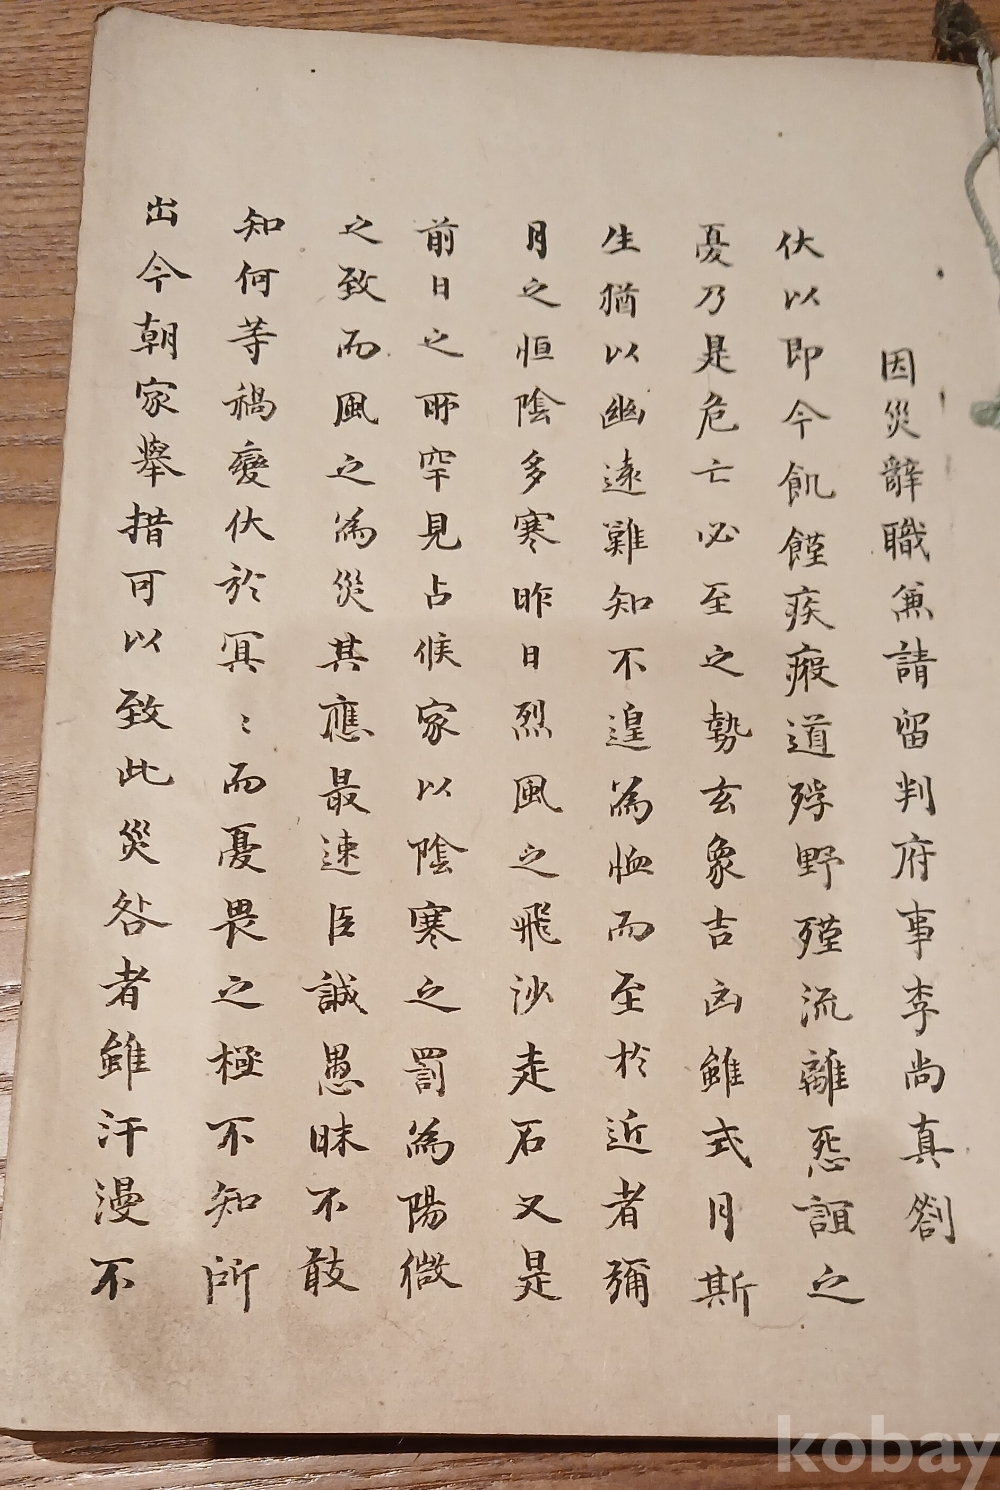 因災辭職兼請留判府事李尚真劄
伏以即今飢饉疾瘢道殍野殣流離怨詛之
憂乃是危亡必至之勢玄象吉凶雖式月斯
生猶以幽遠難知不遑為恤而至於近者彌
月之恒陰多寒昨日烈風之飛沙走石又是
前日之所罕見占候家以陰寒之罰為陽微
之致而風之為災其應最速臣誠愚昧不敢
知何等禍變伏於冥〻而憂畏之極不知所
出今朝家舉措可以致此災咎者雖汗漫不
kobay